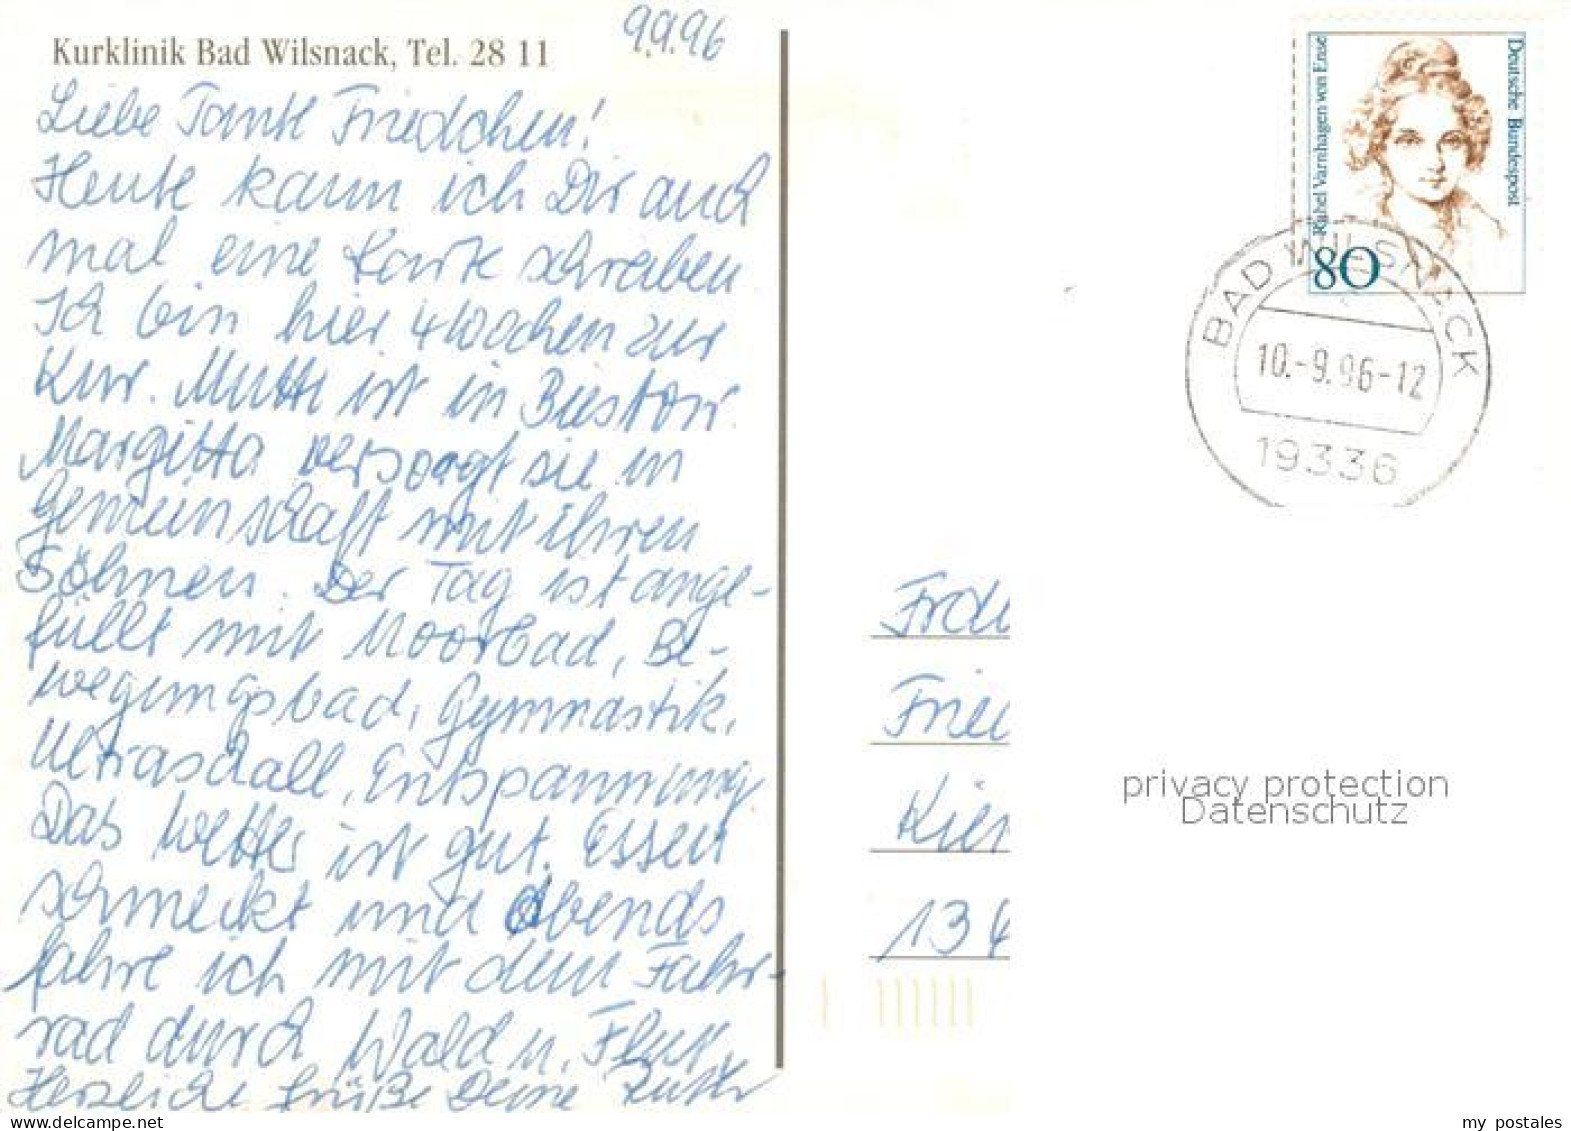 Kurklinik Bad Wilsnack, Tel. 28 11
9.9.96
Liebe Tante Friedchen!
Heute kann ich Dir auch
mal eine Karte schreiben.
Ich bin hier 4 Wochen zur
Kur. Mutti ist in Biestow.
Margitta versorgt sie in
Gemeinschaft mit ihren
Söhnen. Der Tag ist ange-
füllt mit Moorbad, Be-
wegungsbad, Gymnastik,
Ultraschall, Entspannung.
Das Wetter ist gut. Essen
schmeckt und abends
fahre ich mit dem Fahr-
rad durch Wald u. Flur.
Herzliche Grüße Deine Ruth
Rahel Varnhagen von Ense
Deutsche Bundespost
80
BAD WILSNACK
10.-9.96-12
19336
Frau
Frie
Kier
134
privacy protection
Datenschutz
my postales